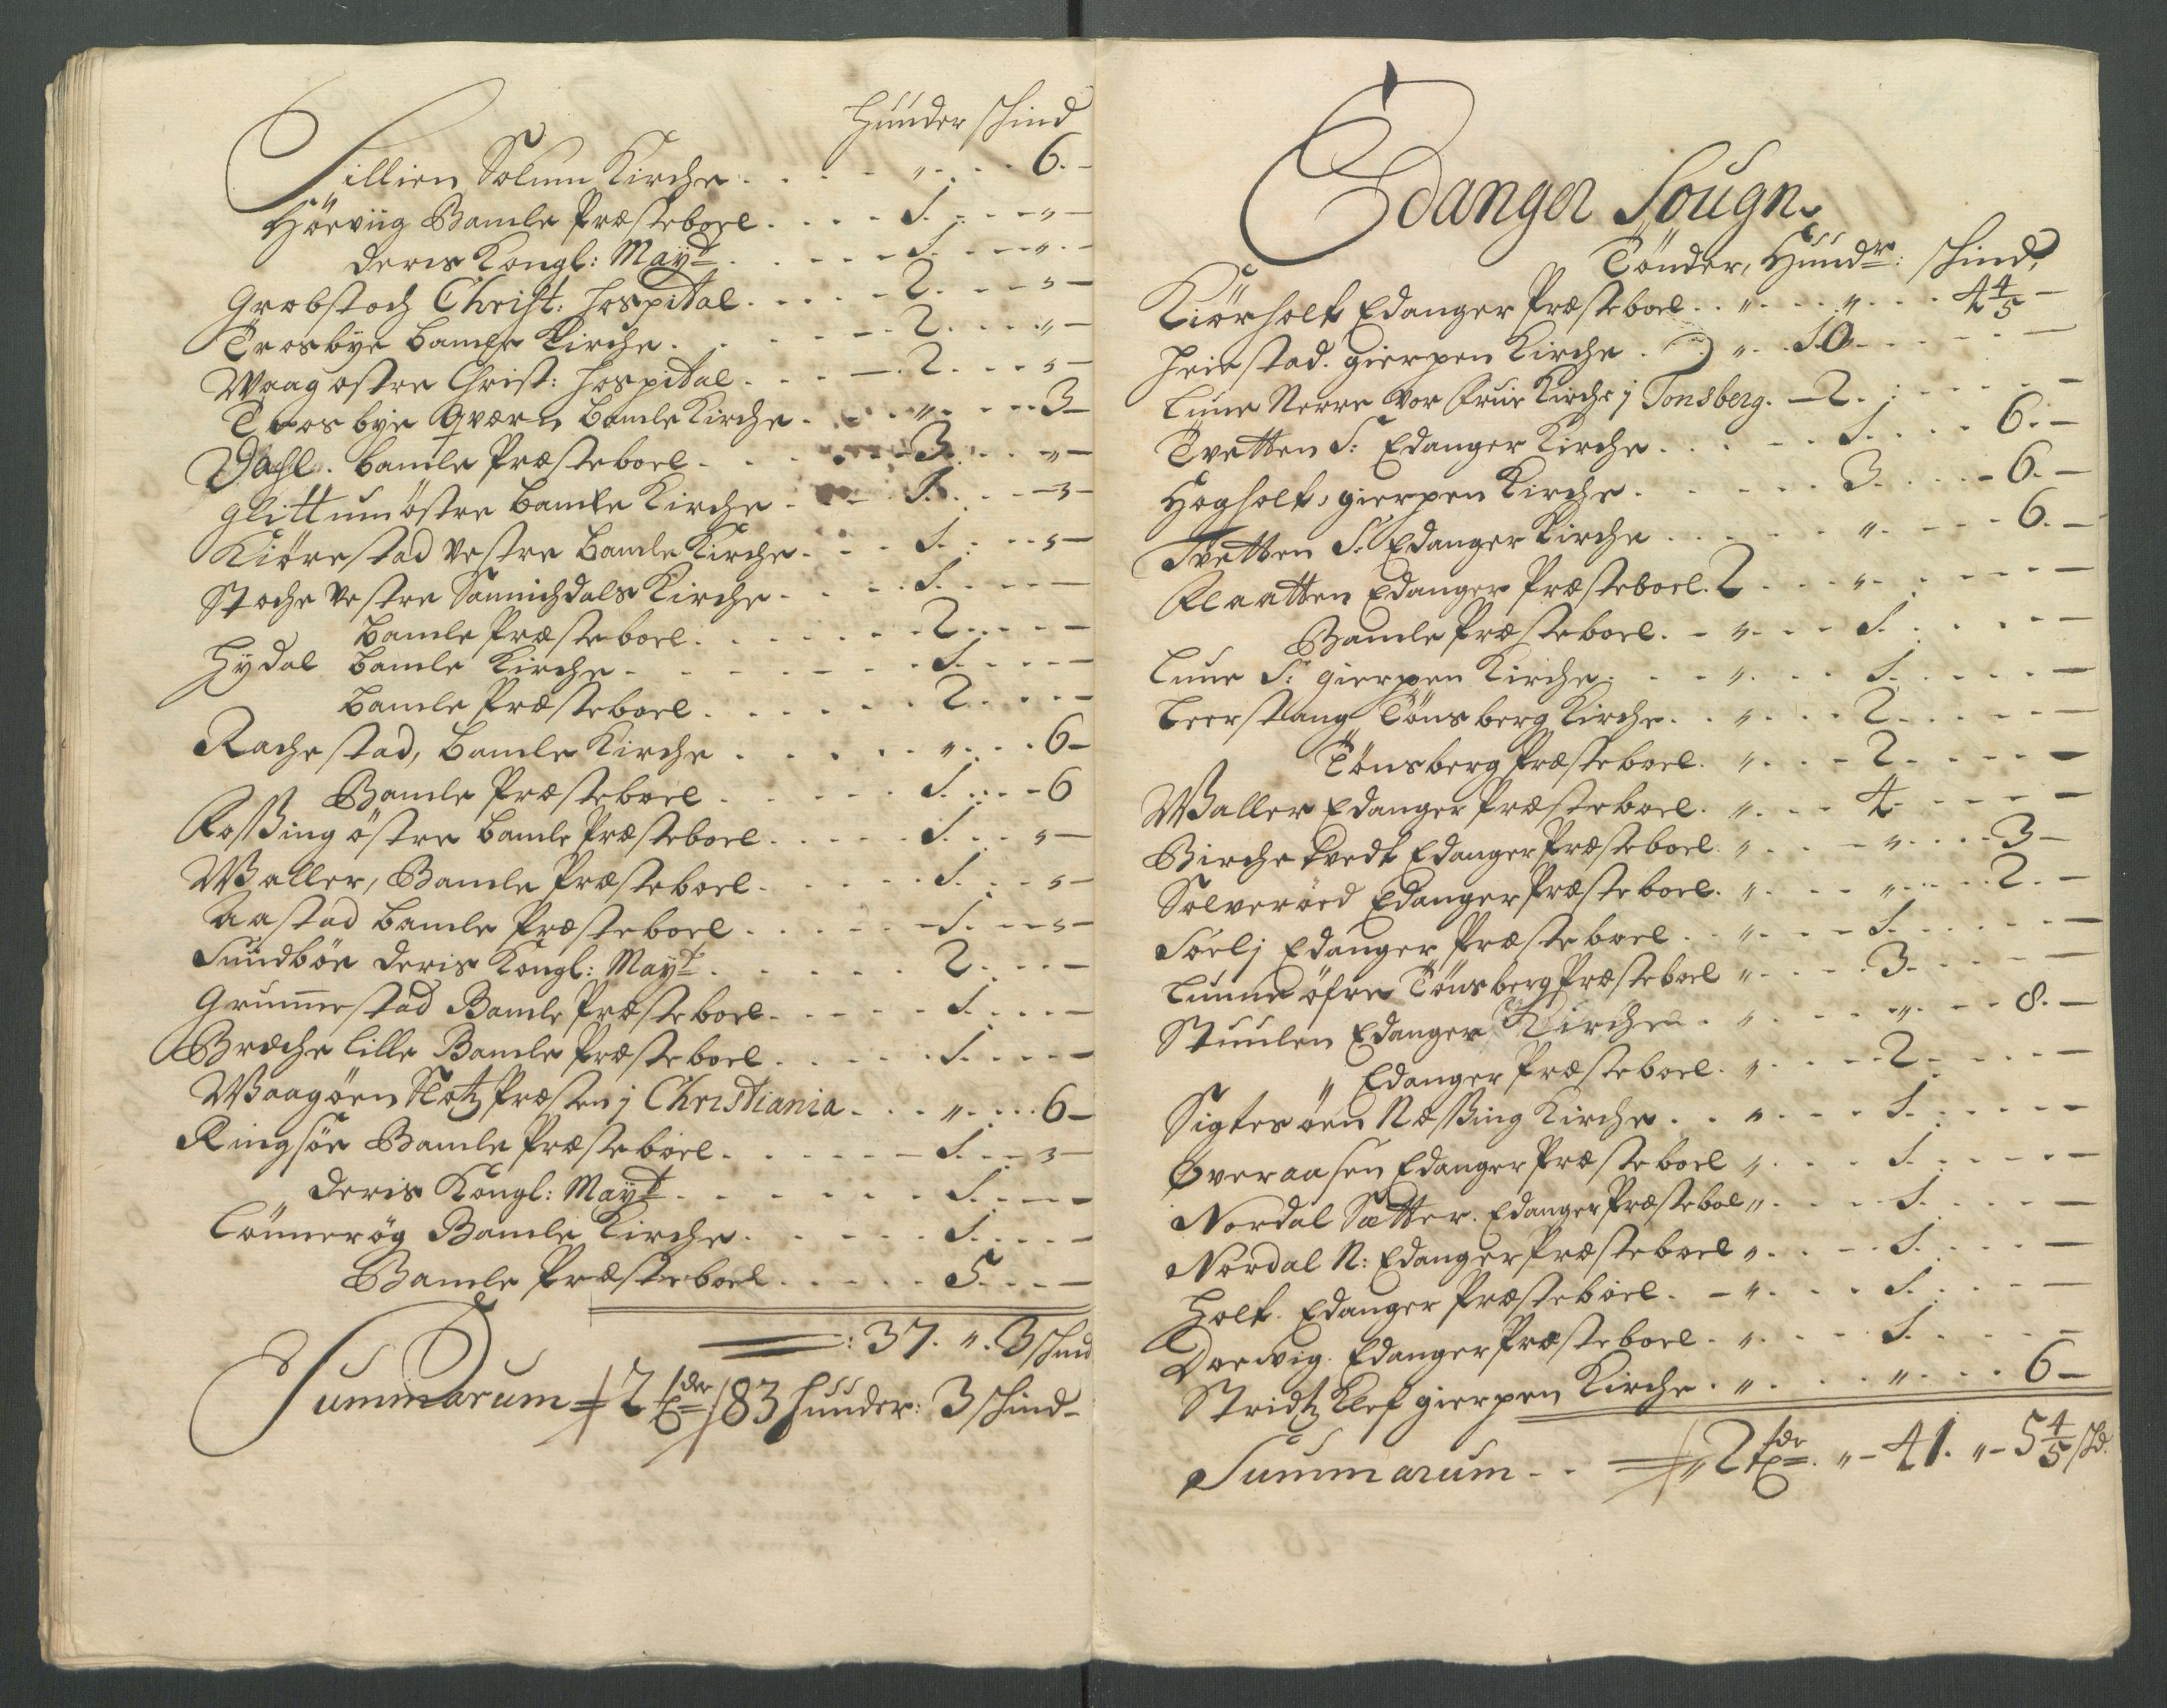 Hunder skind
Tillien Solum Kirche . . . . " . . . 6. -
Hörviig Bamle Præsteboel . . . . 1. . . - " -
Deris Kongl: Mayt. . . . - - - 1. - - - " . -
Grobstoch Christ: Hospital . . . . - 2. . - - " -
Trosbye Bamle Kirche . . . - - . 2. . . . " -
Waag ostre Christ: Hospital . . . - . 2. . . " -
Trosbye Qværn Bamle Kirche . . . " . . . . 3 -
Dahl. Bamle Præsteboel . . . . . - 3. . . " -
Glittum östre Bamle Kirche . . - . 1. . . - " -
Kiörestad vestre Bamle Kirche . . . 1. . . . " -
Stoche vestre Sannichdals Kirche . . . . 1. . . - - -
Bamle Præsteboel . . . . . - 2. . . . -
Hydal Bamle Kirche . . . . . . - 1. . . . -
Bamle Præsteboel . . . . . . . 2. . . . -
Rachestad, Bamle Kirche . . . . . " . . . 6 -
Bamle Præsteboel . . . . . . 1. . . . - 6
Roßing östre Bamle Præsteboel . . . . . 1. . . " -
Waller, Bamle Præsteboel . . . . . . 1. . . " -
Aastad Bamle Præsteboel . . . . . - 1. . - - " -
Sundböe Deris Kongl: Mayt. . . . . . 2. . - . -
Grummestad Bamle Præsteboel . . . . . 1. . . . -
Bræche lille Bamle Præsteboel . . . . . 1. . . . -
Waagöen Slotz Præsten i Christiania . . . " . . . . 6 -
Ringsöe Bamle Præsteboel . . . . . - 1. . - - " -
Deris Kongl: Mayt. . . . . . . 1. - . -
Lönnerög Bamle Kirche . . . . . 1. . . . -
Bamle Præsteboel . . . . . 5. . . -
: 37. " . 3 skind
Summarum 2 Tder 83 Hunder: 3 skind -
Edanger Sougn.
Tönder, Hundr: skind,
Kiörholt Edanger Præsteboel . . " . . . " . . . 4 4/5 -
Heiestad. gierpen Kirche . " . . 10 - . . . . -
Lune Nerre vor Frue Kirche i Tonsberg. - 2. . . . . -
Tvetten S: Edanger Kirche . . . . . . 1. . . . 6. -
Hogholt, gierpen Kirche . . . . . . 3. . . . - 6. -
Tvetten S: Edanger Kirche . . . . . " . . . - 6. -
Flaatten Edanger Præsteboel. 2 . . . " . . . - . -
Bamle Præsteboel. - " . . . 1. . . . . -
Lune S: gierpen Kirche. . . " . . . 1. . . . . -
Leerstang Tönsberg Kirche. . " . . . 2. . . . . -
Tönsberg Præsteboel. " . . . 2. . . . . -
Waller Edanger Præsteboel. " . . . 4. . . . -
Birchetvedt Edanger Præsteboel. " . . - " . . . 3 -
Solveröed Edanger Præsteboel. " . . . " . . . 2. -
Sörli Edanger Præsteboel . . " . . . 1. . . . . -
Lunne öfre Tönsberg Præsteboel " . . . 3. . . . -
Stuulen Edanger Kirche . " . . . " . . - 8. -
" Edanger Præsteboel. " . . . - 2. . . . -
Sigtesöen Næßing Kirche . . " . . . 1. . . . . -
Overaasen Edanger Præsteboel " . . . 1. . . . . -
Nordal Sætter. Edanger Præstebol " . . . - 1. . . . -
Nordal N: Edanger Præsteboel " . . . . 1. . . . -
Holt. Edanger Præsteboel. - " . . . 1. . . . -
Dorwig. Edanger Præsteboel. " . . . 1. . . . -
Stridtz Klef gierpen Kirche . " . . . " . . . . 6 -
Summarum - - " 2 Tde. " - 41. " - 5 4/5 skd.